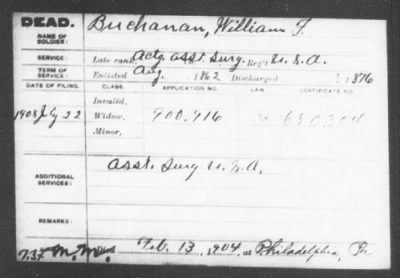 DEAD.
NAME OF SOLDIER: Buchanan, William F.
SERVICE: Late rank, Actg. Asst. Surg. Reg't U.S.A.
TERM OF SERVICE: Enlisted Aug. 1862 Discharged 1876
DATE OF FILING. CLASS. APPLICATION NO. LAW. CERTIFICATE NO.
Invalid,
1908 July 22 Widow, 900.916
Minor,
ADDITIONAL SERVICES: Asst. Surg U.S.A.
REMARKS:
Feb. 13, 1904, at Philadelphia, Pa